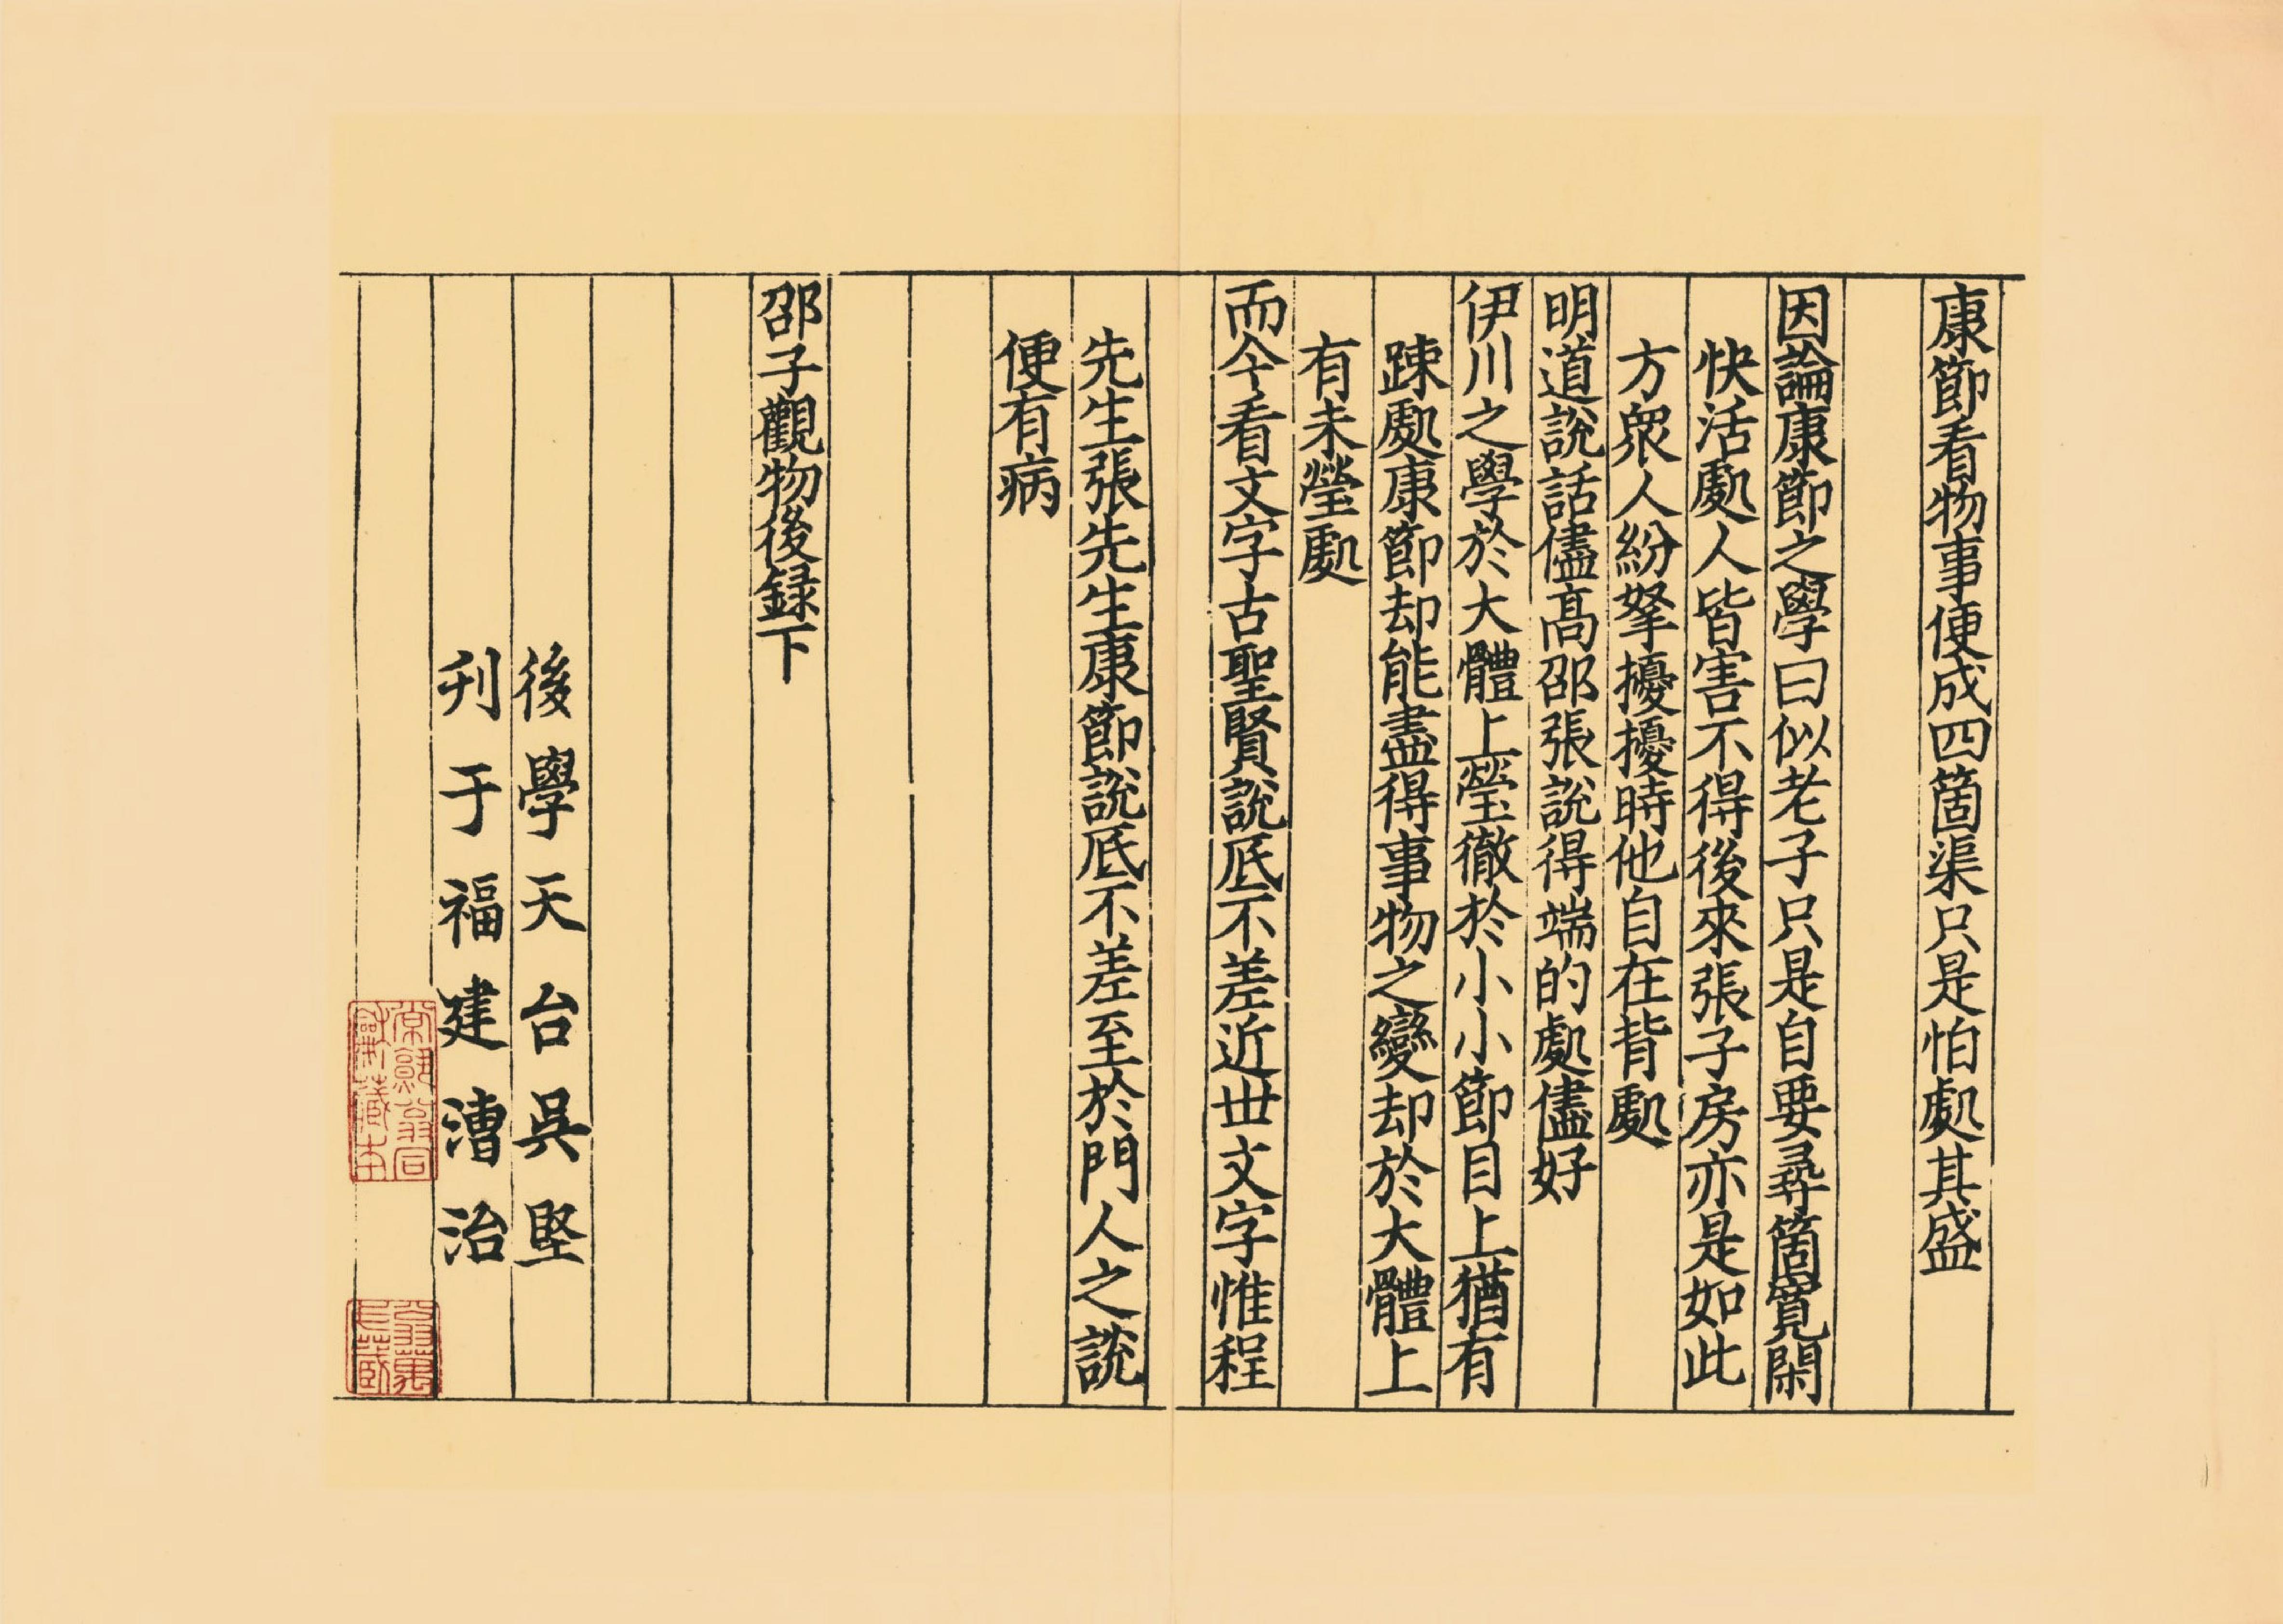 康節看物事便成四箇渠只是怕處其盛
因論康節之學曰似老子只是自要尋箇寬閑
快活處人皆害不得後來張子房亦是如此
方衆人紛拏擾擾時他自在背處
明道說話儘髙邵張說得端的處儘好
伊川之學於大體上瑩徹於小小節目上猶有
踈處康節却能盡得事物之變却於大體上
有未瑩處
而今看文字古聖賢說底不差近世文字惟程
先生張先生康節說底不差至於門人之說
便有病
邵子觀物後録下
後學天台吳堅
刋于福建漕治
常熟翁同
龢藏本
翁萬
戈藏